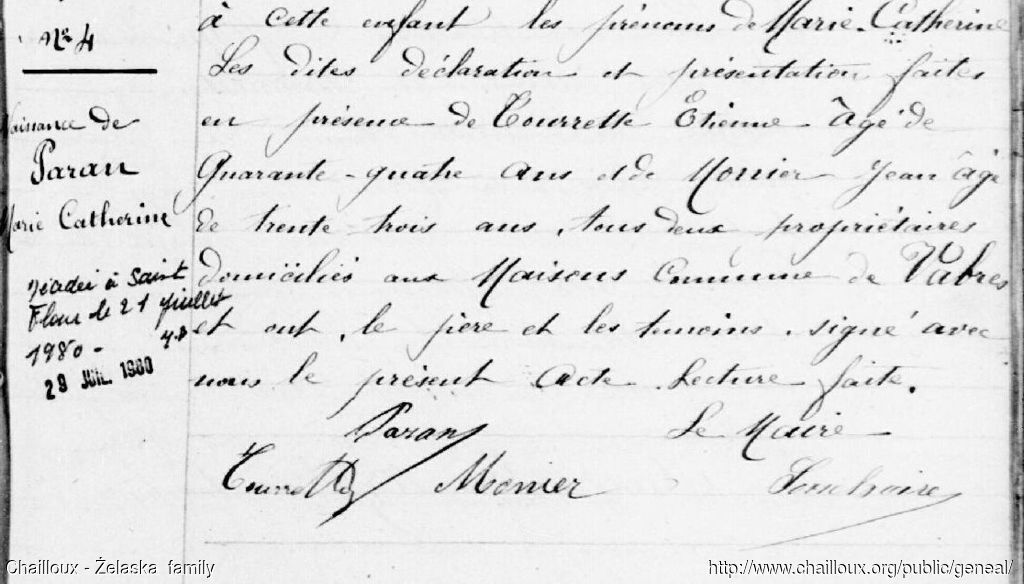 N° 4
Naissance de
Paran
Marie Catherine
Décédée à Saint
Flour le 21 juillet
1980 -
29 JUIL. 1980
à cette enfant les prénoms de Marie Catherine
Les dites déclaration et présentation faites
en présence de Tourrette Etienne âgé de
Quarante-quatre ans et de Monier Jean âgé
de trente-trois ans, tous deux propriétaires
domiciliés aux Maisons Commune de Vabres
et ont, le père et les temoins, signé avec
nous le présent acte. Lecture faite.
Paran
Le Maire
Tourrette
Monier
Chailloux - Żelaska family
http://www.chailloux.org/public/geneal/